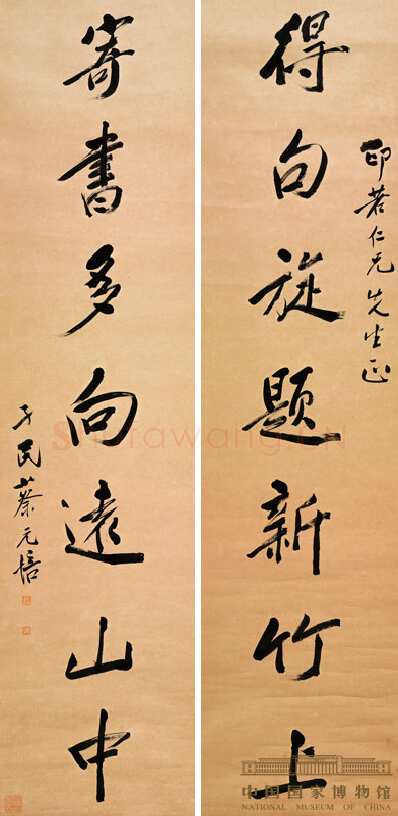 得句旋题新竹上
印若仁兄先生正
寄書多向遠山中
孑民蔡元培
中国国家博物馆
NATIONAL MUSEUM OF CHINA